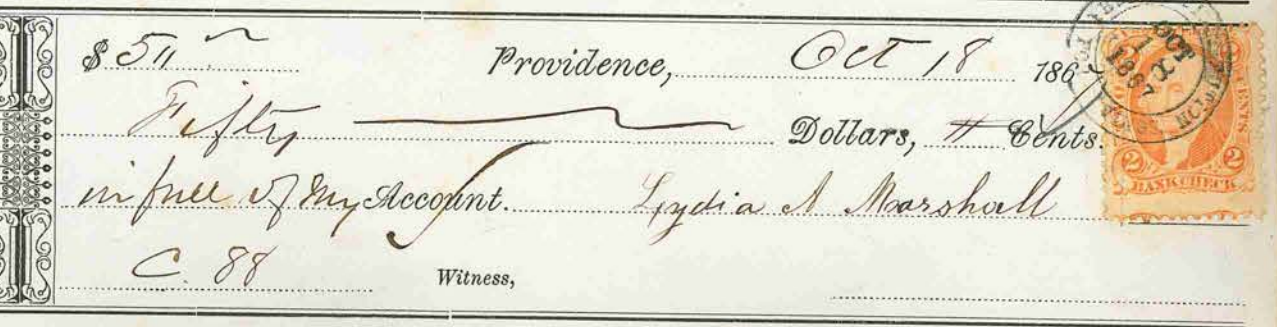 $ 50 Providence, Oct 18 1867
Fifty Dollars, Cents.
in full of my Account. Lydia A Marshall
C. 88 Witness,
OCT 18 1867
2 CENTS. 2
BANK CHECK